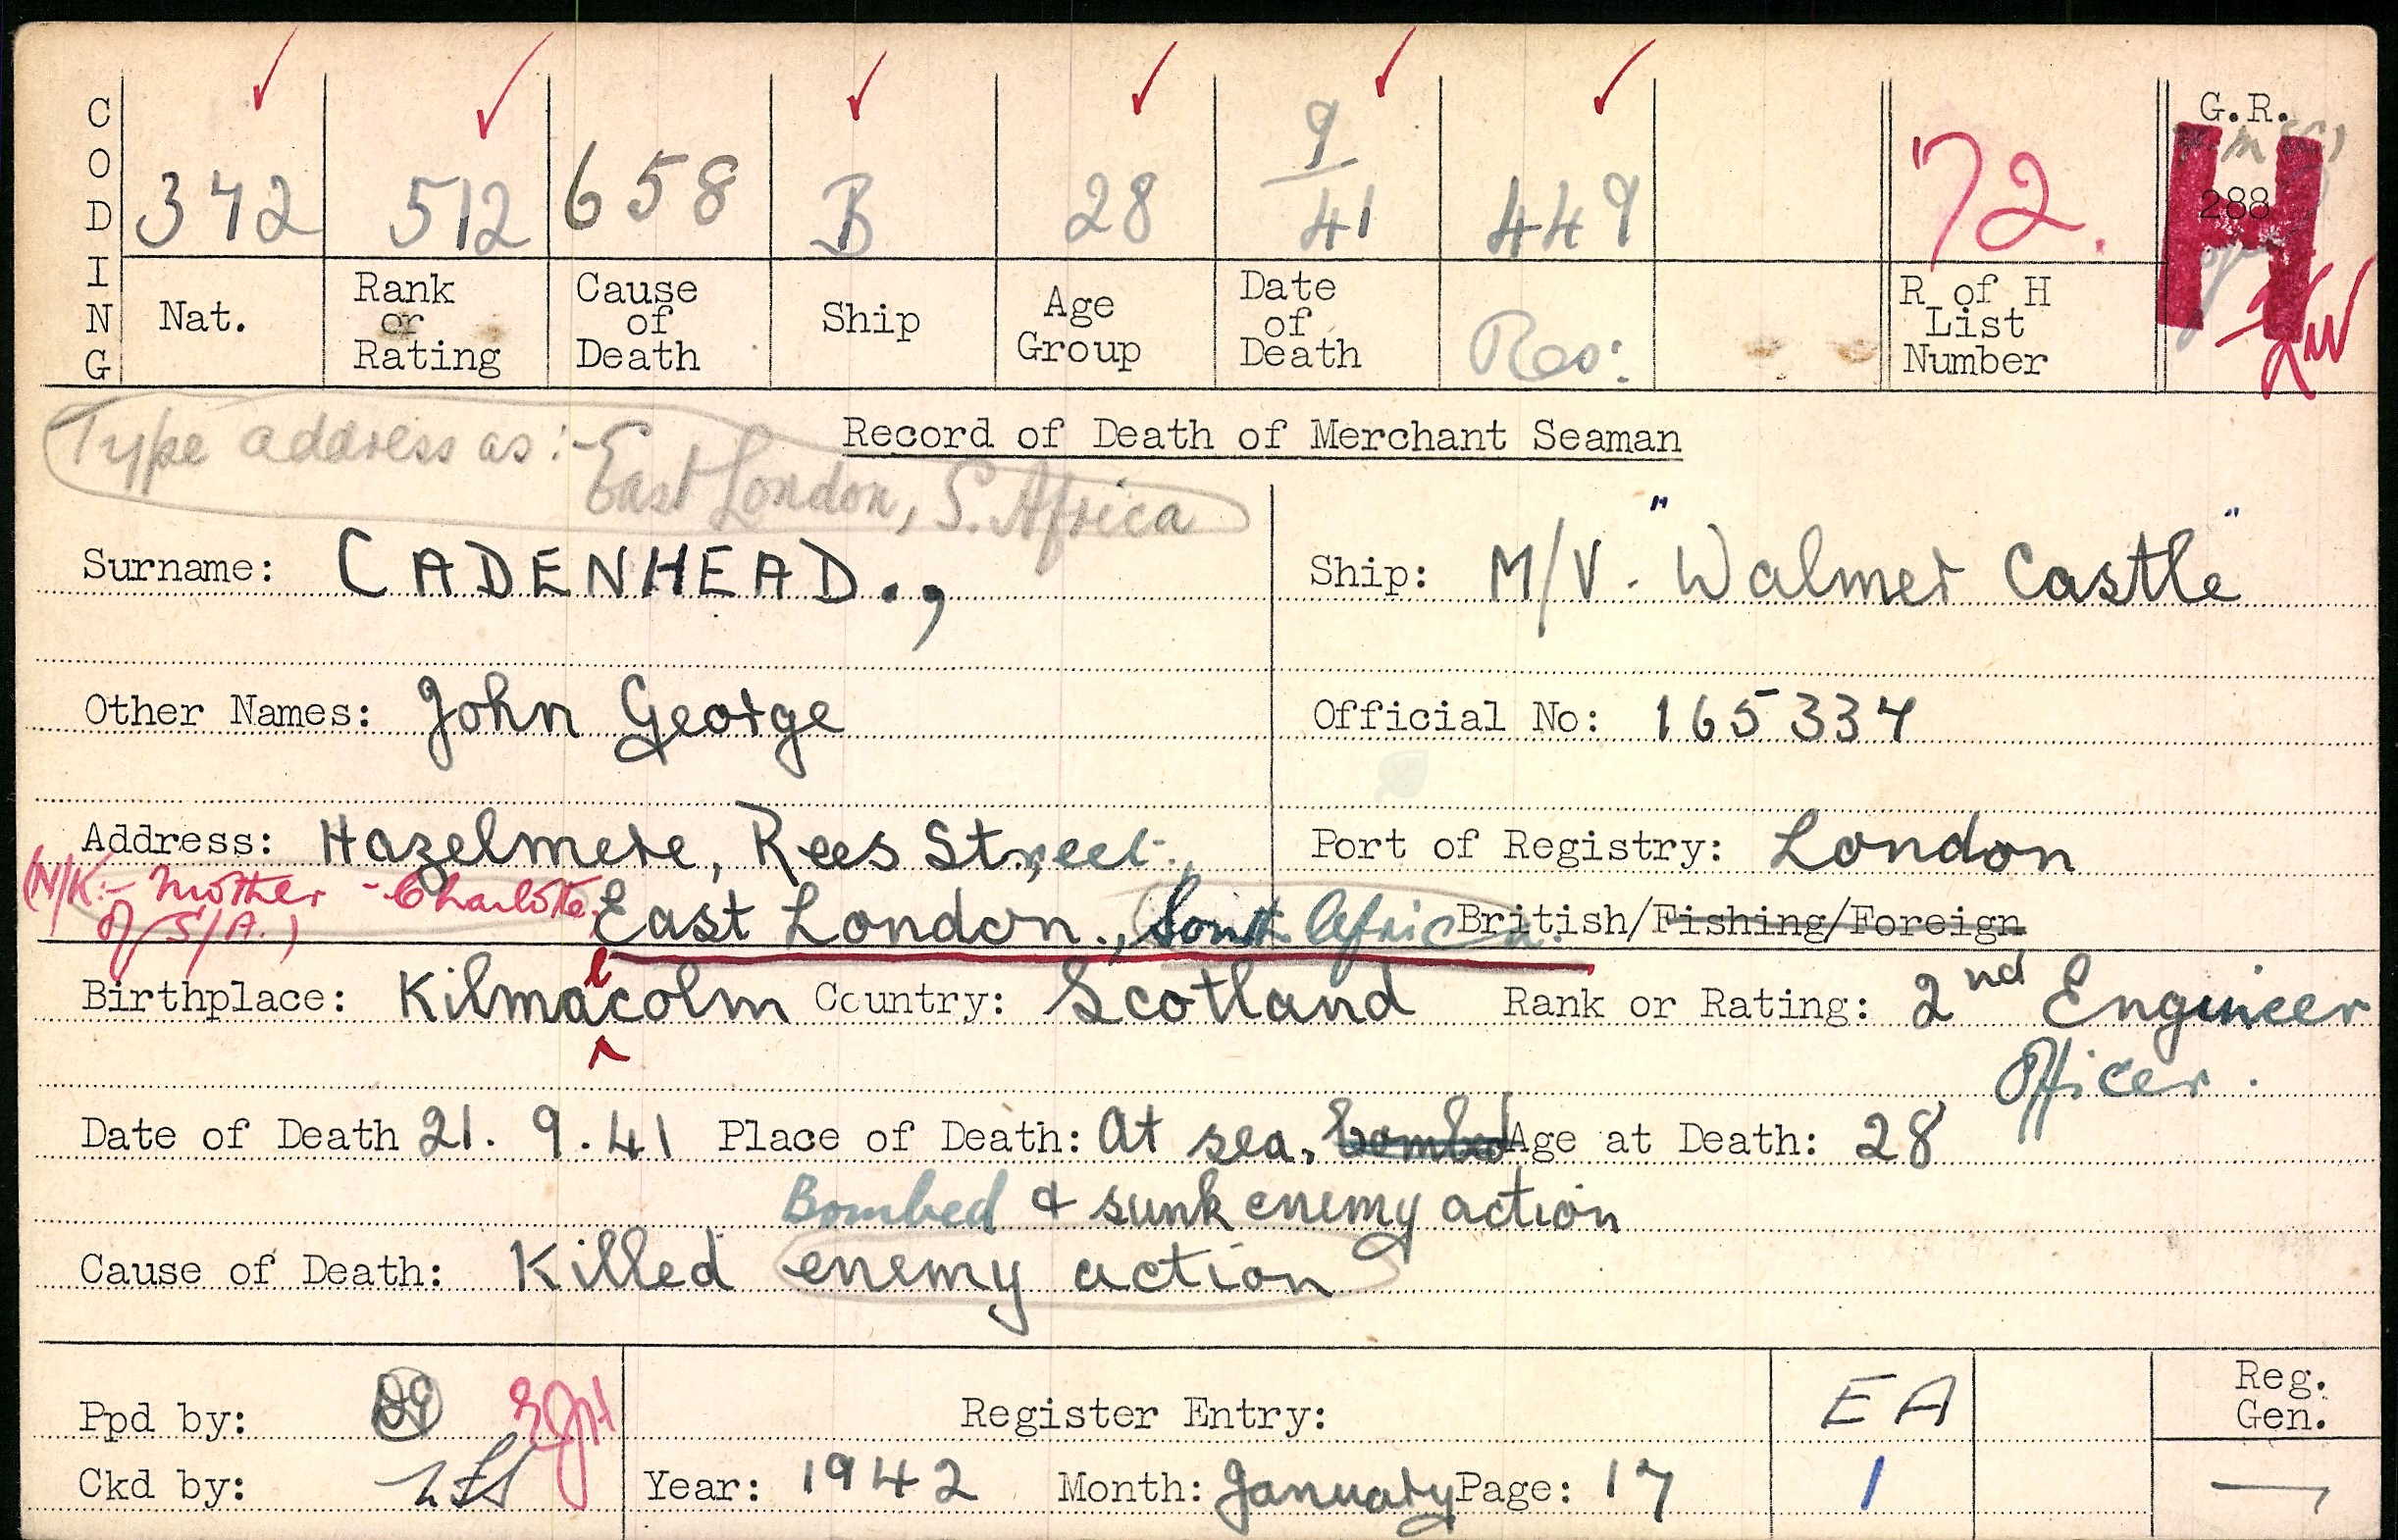 CODING
342 512 658 B 28 9/41 449 72. G.R. 288 H
Nat. Rank or Rating Cause of Death Ship Age Group Date of Death Res: R of H List Number
Type address as:- East London, S. Africa
Record of Death of Merchant Seaman
Surname: CADENHEAD.,
Ship: M/V. "Walmer Castle"
Other Names: John George
Official No: 165334
Address: Hazelmere, Rees Street.,
Port of Registry: London
(N/K:- Mother - Charlotte.
of S/A.)
East London., South Africa.
British/Fishing/Foreign
Birthplace: Kilmalcolm Country: Scotland Rank or Rating: 2nd Engineer
Officer.
Date of Death 21. 9. 41 Place of Death: At sea, bombed Age at Death: 28
Bombed & sunk enemy action
Cause of Death: Killed enemy action
Ppd by: Register Entry: EA Reg. Gen.
Ckd by: Year: 1942 Month: January Page: 17 1